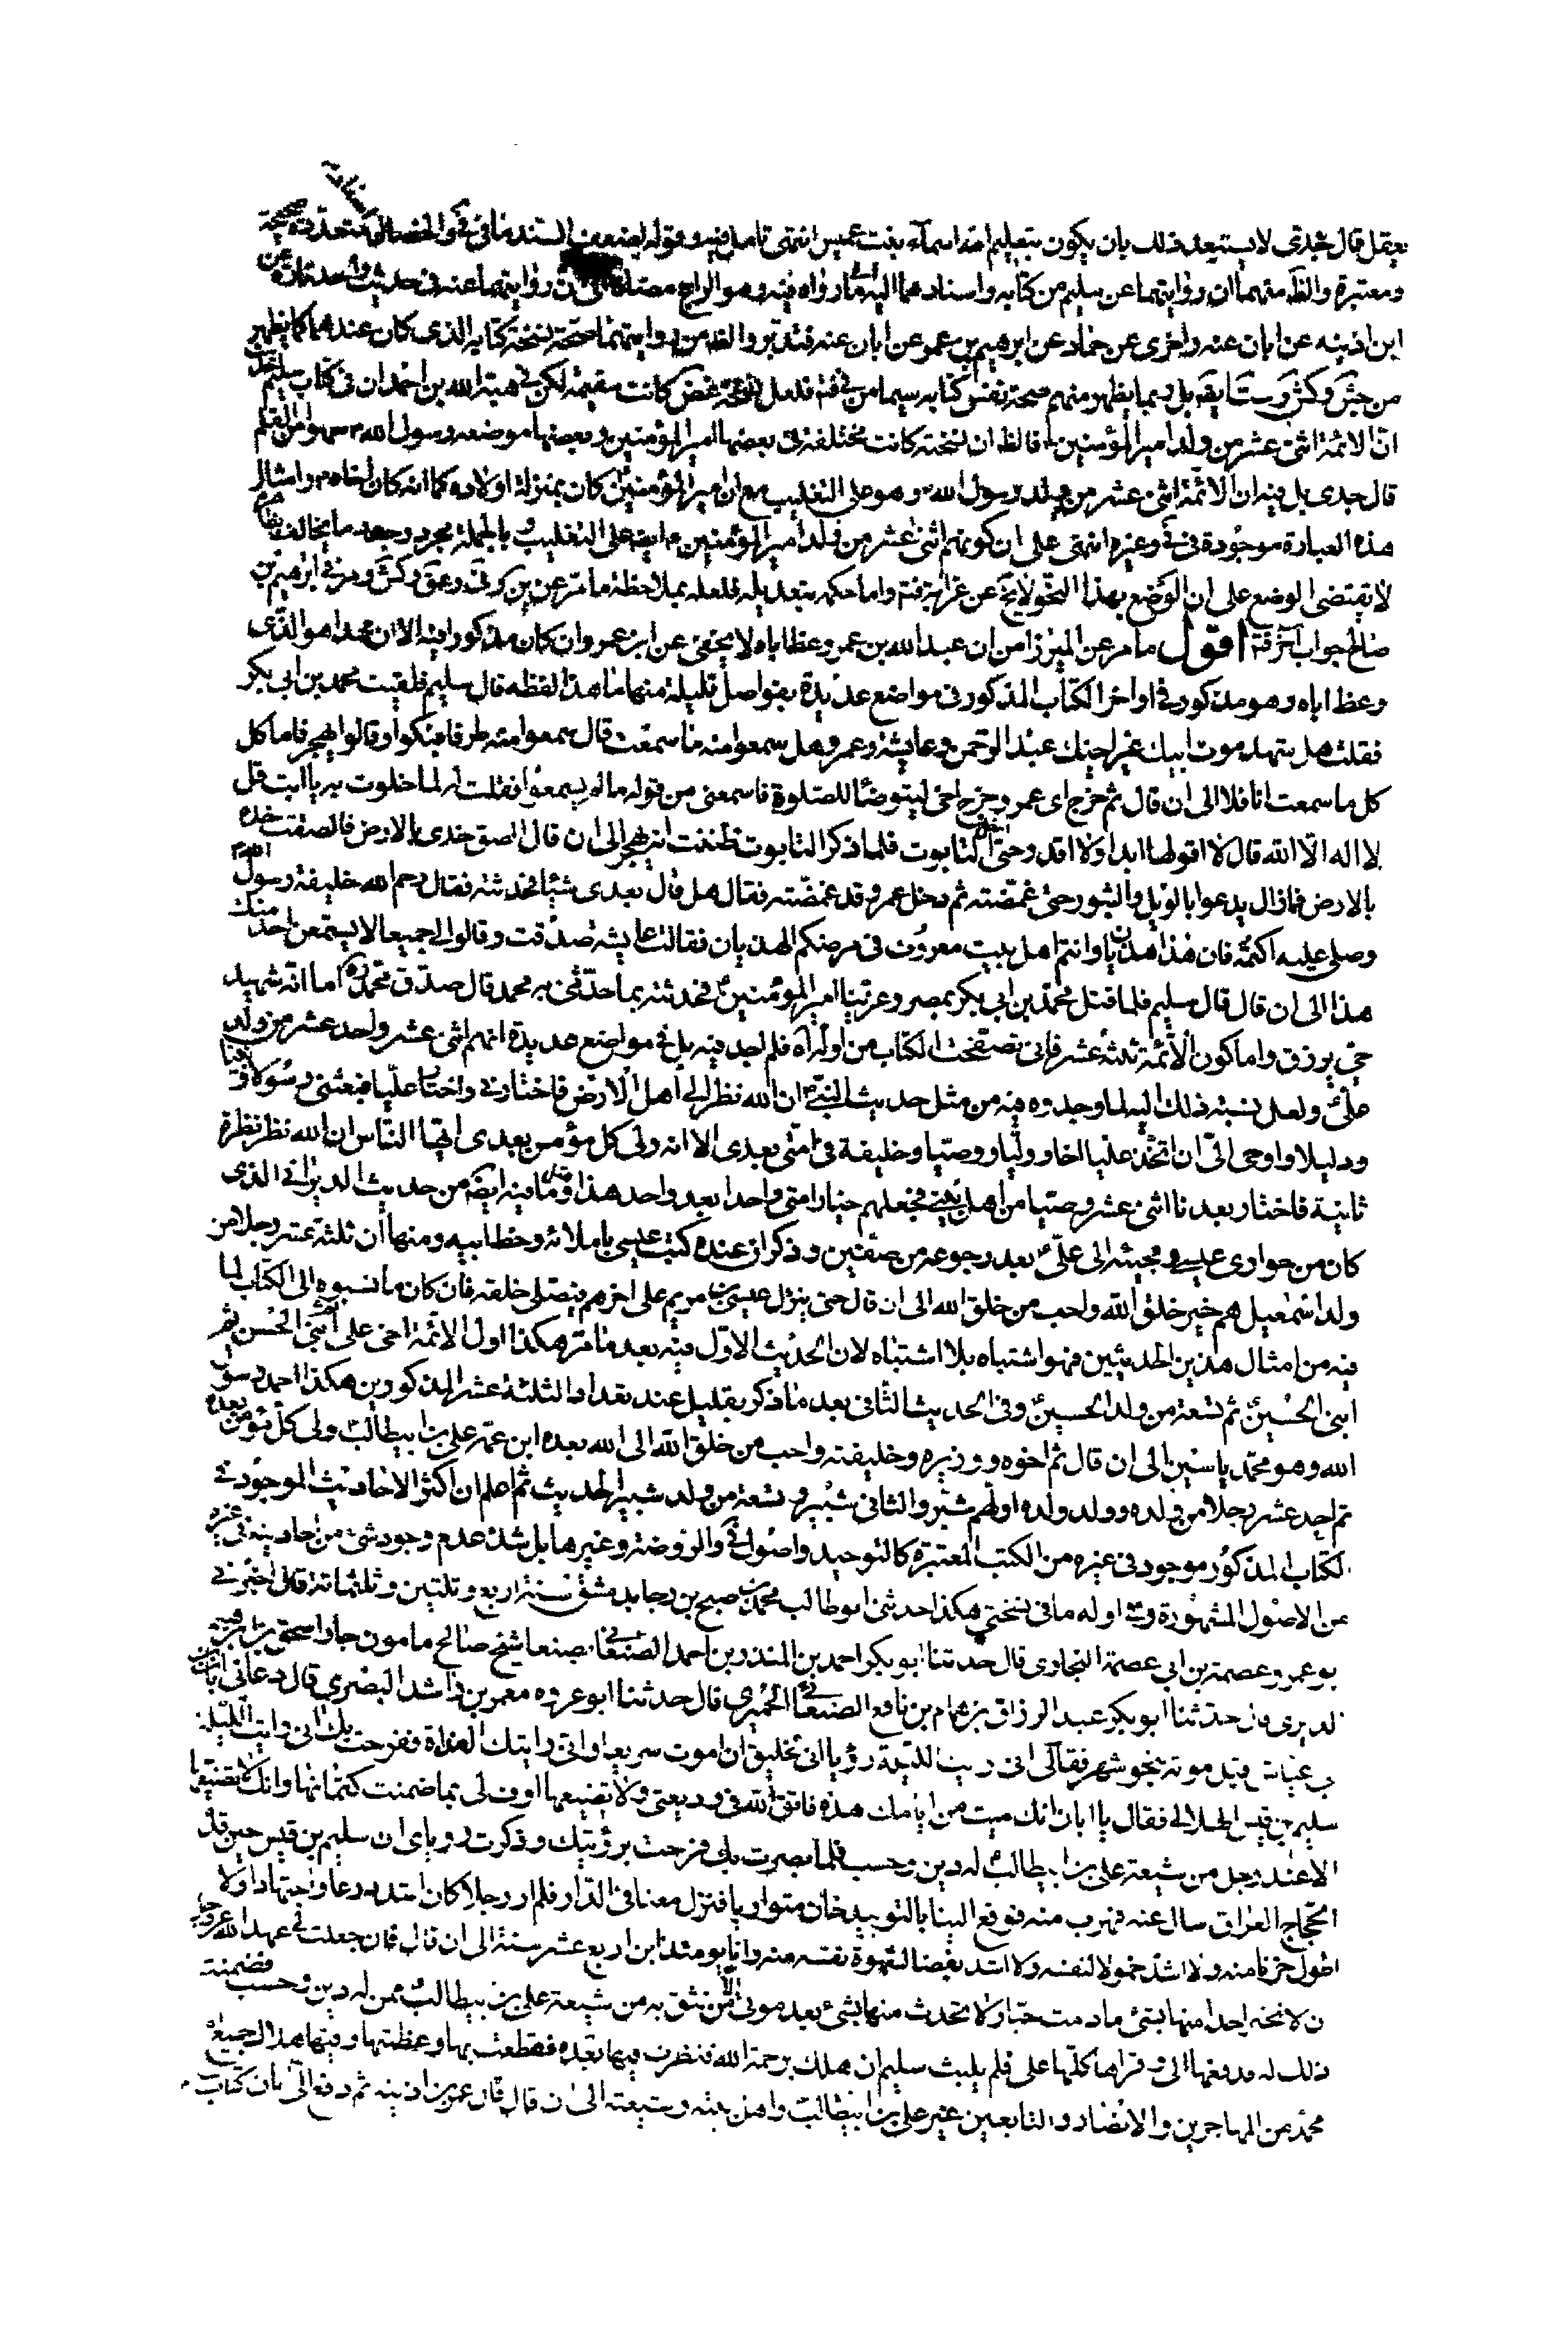 يعقل قال جدى لا يستبعد ذلك بان يكون بتعليم امه اسماء بنت عميس انتهى تأمل فيه وقوله لضعف السند فافى فى والخصال متعددة صحيحة
ومعتبرة والظ منهما ان روايتهما عن سليم من كتابه واسنادهما اليه ما رواه فيه وهو الراجح روايتهما عنه فى حديث
ابن اذينه عن ابان عنه واخرى عن حماد عن ابرهيم بن عمر عن ابان عنه فتدبر والظ من روايتهما صحة نسخة كتابه الذى كان عندهما كما يظهر
من جش وكش وست ايضه بل ربما يظهر منهم صحة نفس كتابه سيما من فى فت فلعل نسخة غض كانت سقيمة لكن فى هبة الله بن احمد ان فى كتاب سليم
ان الائمة اثنى عشر من ولد امير المؤمنين فالظ ان نسخته كانت مختلفة فى بعضها امير المؤمنين وبعضها موضعه رسول الله سهوا من القلم
قال جدى بل فيه ان الائمة اثنى عشر من ولد رسول الله وهو على التغليب مع ان امير المؤمنين كان بمنزلة اولاده كما انه كان اخاه وامثال
هذه العبارة موجودة فى فى وغيره انتهى على ان كونهم اثنى عشر من ولد امير المؤمنين ايضه على التغليب وبالجملة مجرد وجود ما يخالف بظاهره
لا يقتضى الوضع على ان الوضع بهذا النحو لا يخ عن غرابة فتم واما حكمه بتعديله فلعله بملاحظة ما مر عن ين كر فى وعق وكش ومر فى ابرهيم بن
صالح جواب اخر فتم اقول ما مر عن الميرزا من ان عبد الله بن عمر وعظ اباه لا يخفى عن ابن عمر وان كان مذكورا فيه الا ان محمدا هو الذى
وعظ اباه وهو مذكور فى اواخر الكتاب المذكور فى مواضع عديدة بفواصل قليلة منها ما هذا لفظه قال سليم فلقيت محمد بن ابى بكر
فقلت هل شهد موت ابيك غير اخيك عبد الرحمن وعايشة وعمر وهل سمعوا منه ما سمعت قال سمعوا منه طرفا فبكوا وقالوا يهجر فاما كل
كل ما سمعت انا فلا الى ان قال ثم خرج اى عمر وخرج اخى ليتوضأ للصلوة فاسمعنى من قوله ما لم يسمعوا فقلت له لما خلوت به يا ابت قل
لا اله الا الله قال لا اقولها ابدا ولا اقدر حتى التابوت فلما ذكر التابوت ظننت انه يهجر الى ان قال الصق خدى بالارض فالصقت خده
بالارض فما زال يدعوا بالويل والثبور حتى غمضته ثم دخل عمر وقد غمضته فقال هل قال بعدى شيئا فحدثته فقال رحم الله خليفة رسول
وصلى عليه اكتمه فان هذا هذيان وانتم اهل بيت معروف فى مرضكم الهذيان فقالت عايشة صدقت وقالوا لى جميعا لا يسمعن احد منك
هذا الى ان قال قال سليم فلما قتل محمد بن ابى بكر بمصر وعزينا امير المؤمنين فحدثته بما حدثنى به محمد قال صدق محمد اما انه شهيد
حى يرزق واما كون الائمة ثلثة عشر فانى تصفحت الكتاب من اوله الى اه فلم اجد فيه بل فى مواضع عديدة انهم اثنى عشر واحد عشر من ولد
على ولعل نسبة ذلك اليه لما وجدوه فيه من مثل حديث النبى ان الله نظر الى اهل الارض فاختارنى واختار عليا فبعثنى رسولا ونبيا
ودليلا واوحى الى ان اتخذ عليا اخا ووليا ووصيا وخليفة فى امتى بعدى الا انه ولى كل مؤمن بعدى ايها الناس ان الله نظر نظرة
ثانية فاختار بعدنا اثنى عشر وصيا من اهل بيتى فجعلهم خيار امتى واحدا بعد واحد هذا وما فيه ايضه من حديث الديرانى الذى
كان من حوارى عيسى ومجيئه الى على بعد رجوعه من صفين وذكر ان عنده كتب عيسى باملائه وخط ابيه ومنها ان ثلثة عشر رجلا من
ولد اسمعيل هم خير خلق الله واحب من خلق الله الى ان قال حتى ينزل عيسى بن مريم على اخرهم فيصلى خلفه فان كان ما نسبوه الى الكتاب لما
فيه من امثال هذين الحديثين فهو اشتباه بلا اشتباه لان الحديث الاول فيه بعد ما مر هكذا اول الائمة اخى على ثم ابنى الحسن ثم
ابنى الحسين ثم تسعة من ولد الحسين وفى الحديث الثانى بعد ما ذكر بقليل عند تعداد الثلثة عشر المذكورين هكذا احمد رسول
الله وهو محمد ياسين الى ان قال ثم اخوه ووزيره وخليفته واحب من خلق الله الى الله بعده ابن عمه على بن ابيطالب ولى كل مؤمن بعده
ثم احد عشر رجلا من ولده وولد ولده اولهم شبر والثانى شبير وتسعة من ولد شبير الحديث ثم اعلم ان اكثر الاحاديث الموجود فى
الكتاب المذكور موجود فى غيره من الكتب المعتبرة كالتوحيد واصول فى والروضة وغيرها بل شذ عدم وجود شئ من احاديثه فى غيره
من الاصول المشهورة وفى اوله ما فى نسختى هكذا حدثنى ابو طالب محمد بن صبيح بن رجا بدمشق سنة اربع وثلثين وثلثمائة قال اخبرنى
بو عمرو عصمة بن ابى عصمة البخارى قال حدثنا ابو بكر احمد بن المنذر بن احمد الصنعانى بصنعا شيخ صالح مامون جار اسحق بن ابرهيم
لدبرى قال حدثنا ابو بكر عبد الرزاق بن همام بن نافع الصنعانى الحميرى قال حدثنا ابو عروة معمر بن راشد البصرى قال دعانى ابان
بى عياش قبل موته بنحو شهر فقال لى انى رايت الليلة رؤيا انى لخليق ان اموت سريعا وانى رايتك الغداة ففرحت بك انى رايت الليلة
سليم بن قيس الهلالى فقال يا ابان انك ميت من ايامك هذه فاتق الله فى وديعتى ولا تضيعها واوف لى بما ضمنت كتمانها وانك لا تضعها
الا عند رجل من شيعة على بن ابيطالب له دين وحسب فلما بصرت بك فرحت برؤيتك وذكرت رؤياى ان سليم بن قيس حين قدم
الحجاج العراق سال عنه فهرب منه فوقع الينا بالنوبندجان متواريا فنزل معنا فى الدار فلم ار رجلا كان اشد ورعا واجتهادا ولا
اطول حزنا منه ولا اشد خمولا لنفسه ولا اشد بغضا لشهوة نفسه منه وانا يومئذ ابن اربع عشر سنة الى ان قال فان جعلت لى عهد الله عز وجل
ن لا تخبر احدا منها بشئ ما دمت حيا ولا تحدث منها بشئ بعد موتى الا من تثق به من شيعة على بن ابيطالب ممن له دين وحسب فضمنت
ذلك له فدفعها الى وقراها كلها على فلم يلبث سليم ان هلك رحمة الله فنظرت فيها بعده فقطعت بها وعظمتها وفيها هلاك جميع
محمد من المهاجرين والانصار والتابعين غير على بن ابيطالب واهل بيته وشيعته الى ان قال قال عمر بن اذينه ثم دفع الى ابان كتاب